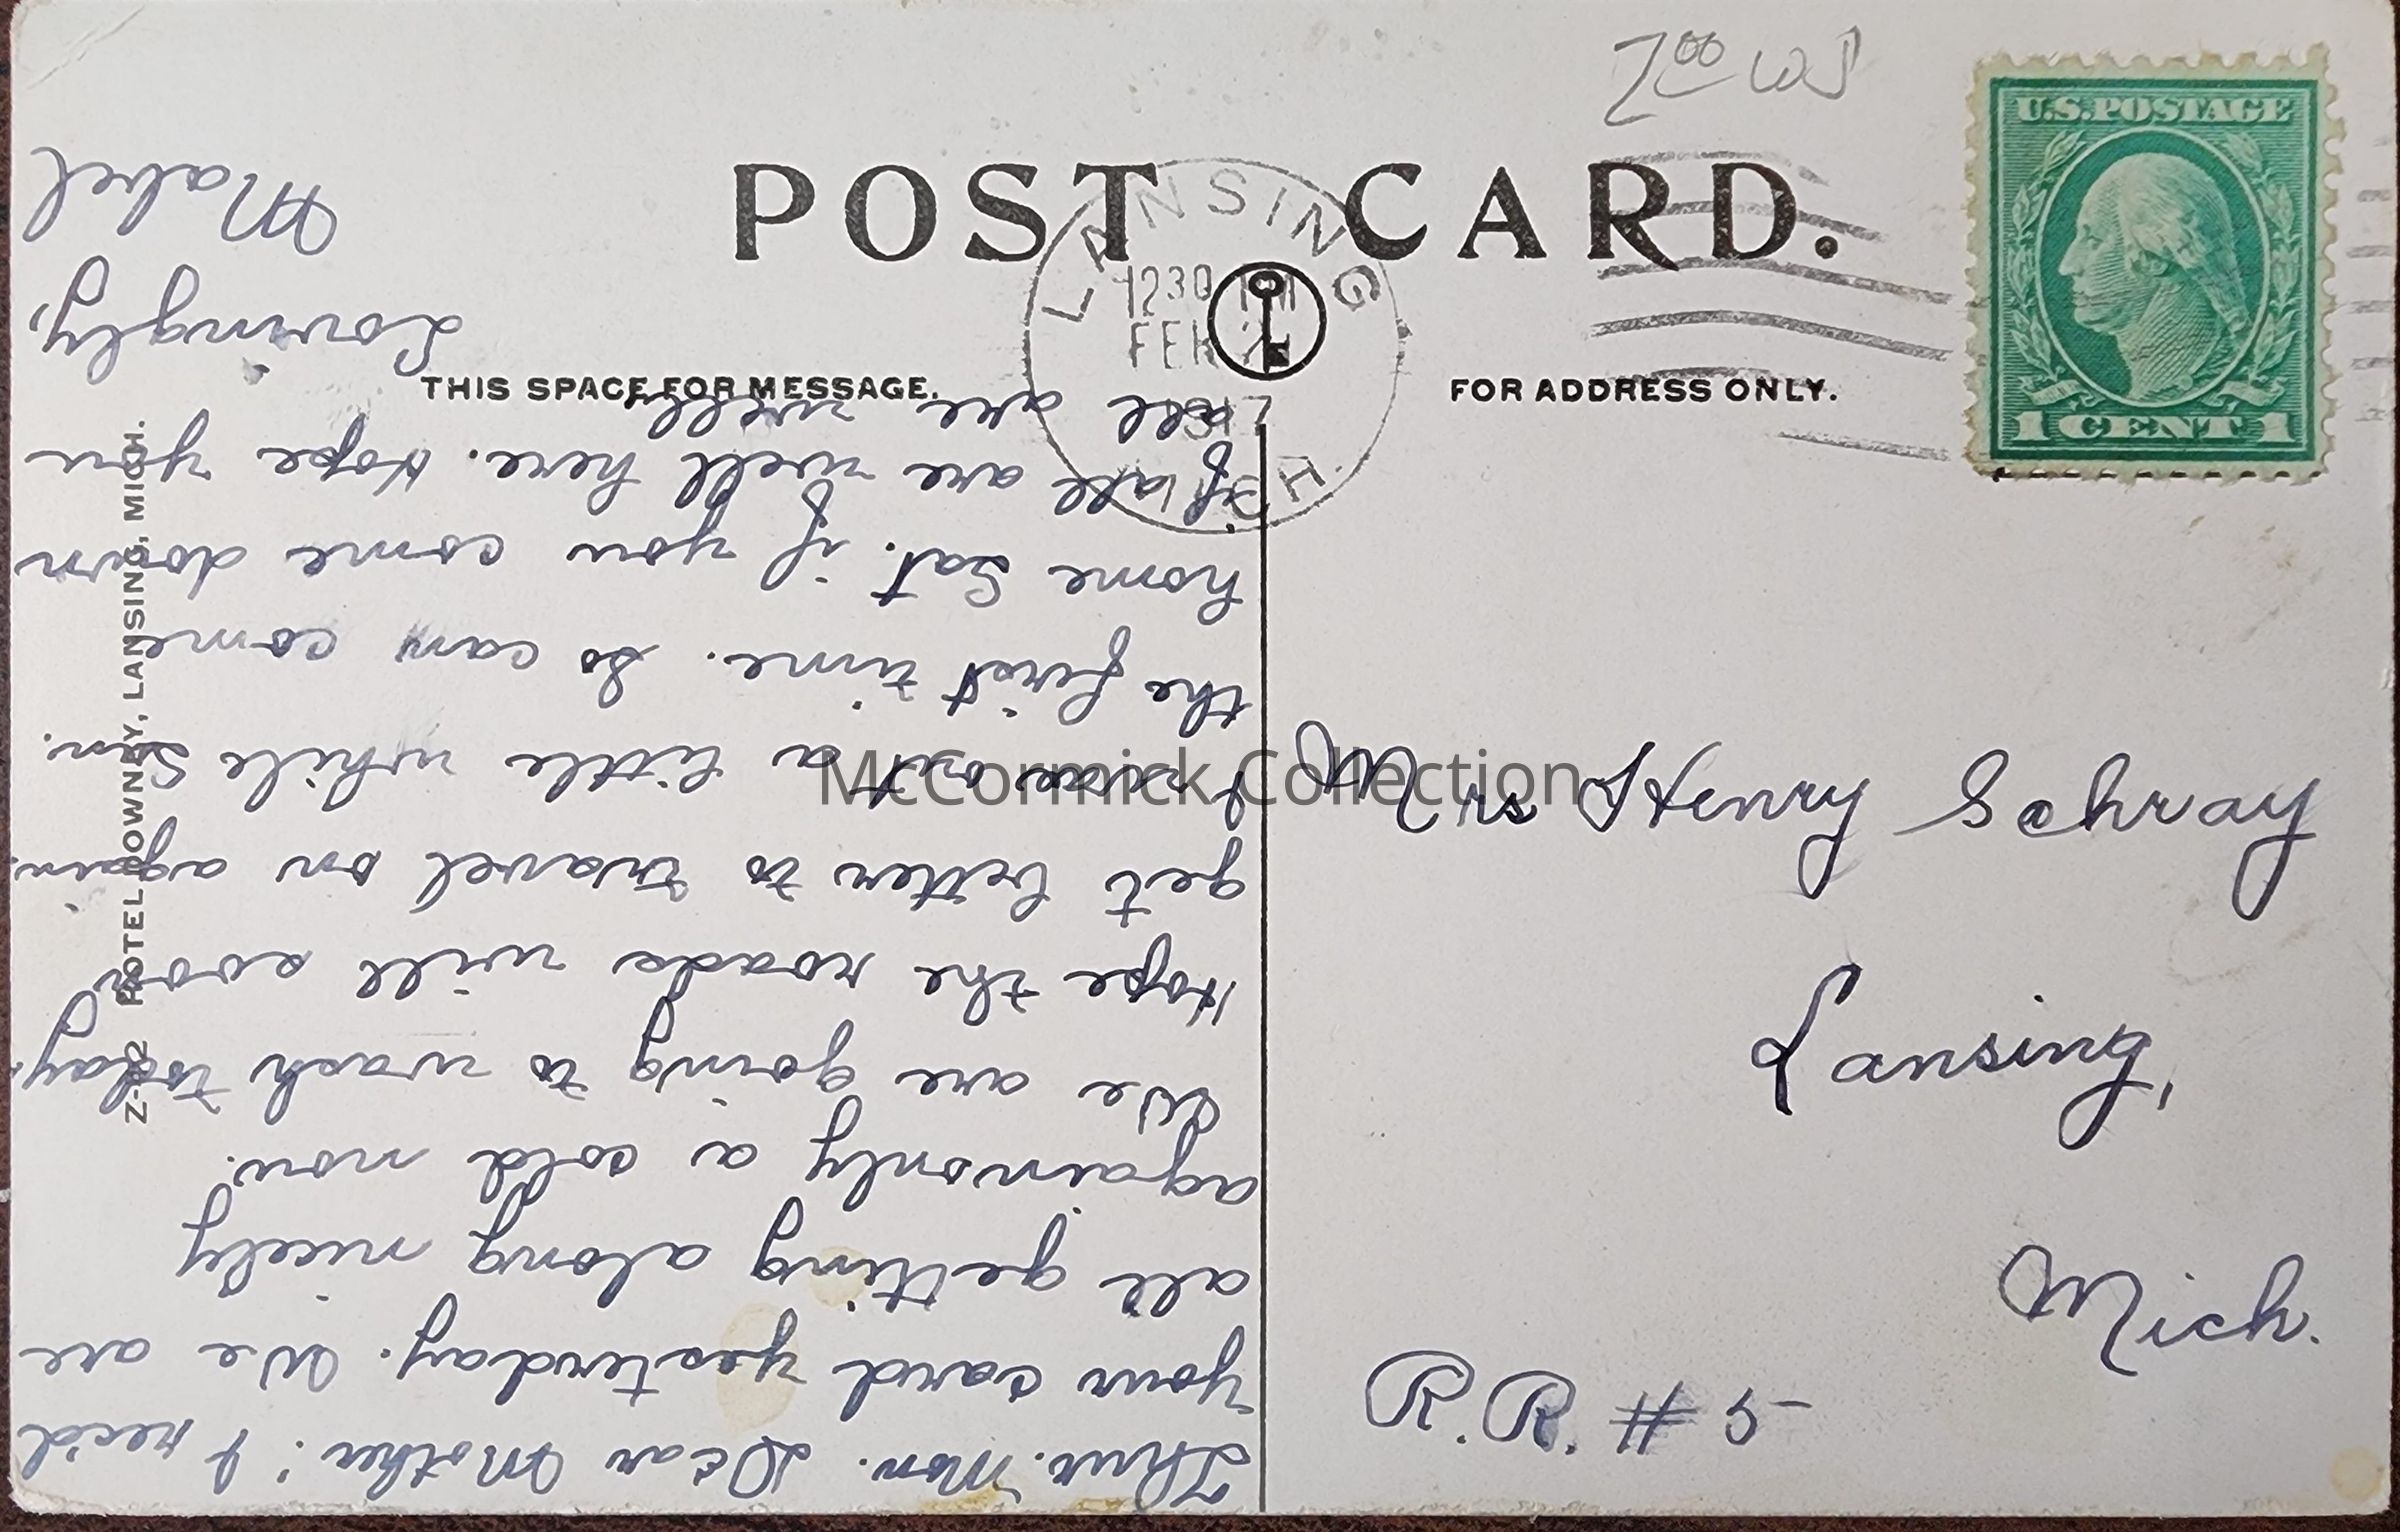 POST CARD.
THIS SPACE FOR MESSAGE.
FOR ADDRESS ONLY.
U.S. POSTAGE
1 CENT 1
LANSING
1230 PM
FEB
1917
MICH.
Z-12 HOTEL DOWNEY, LANSING, MICH.
Thur. Mor. Dear Mother: I rec'd
your card yesterday. We are
all getting along nicely
again only a cold now.
We are going to wash today.
Hope the roads will soon
get better to travel on again.
I was out a little while Sun.
the first time. So can come
home Sat. if you come down
if all are well here. Hope you
all are well
Lovingly,
Mabel
Mrs Henry Schray
Lansing,
Mich.
R.R. # 5
McCormick Collection